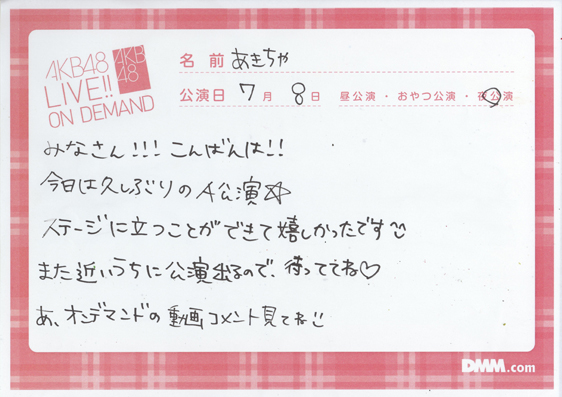 AKB48
LIVE!!
ON DEMAND
AKB
48
名前 あきちゃ
公演日 7月 8日 昼公演・おやつ公演・夜公演
みなさん!!! こんばんは!!
今日は久しぶりのA公演☆
ステージに立つことができて嬉しかったです
また近いうちに公演出るので、待っててね♡
あ、オンデマンドの動画コメント見てね
DMM.com